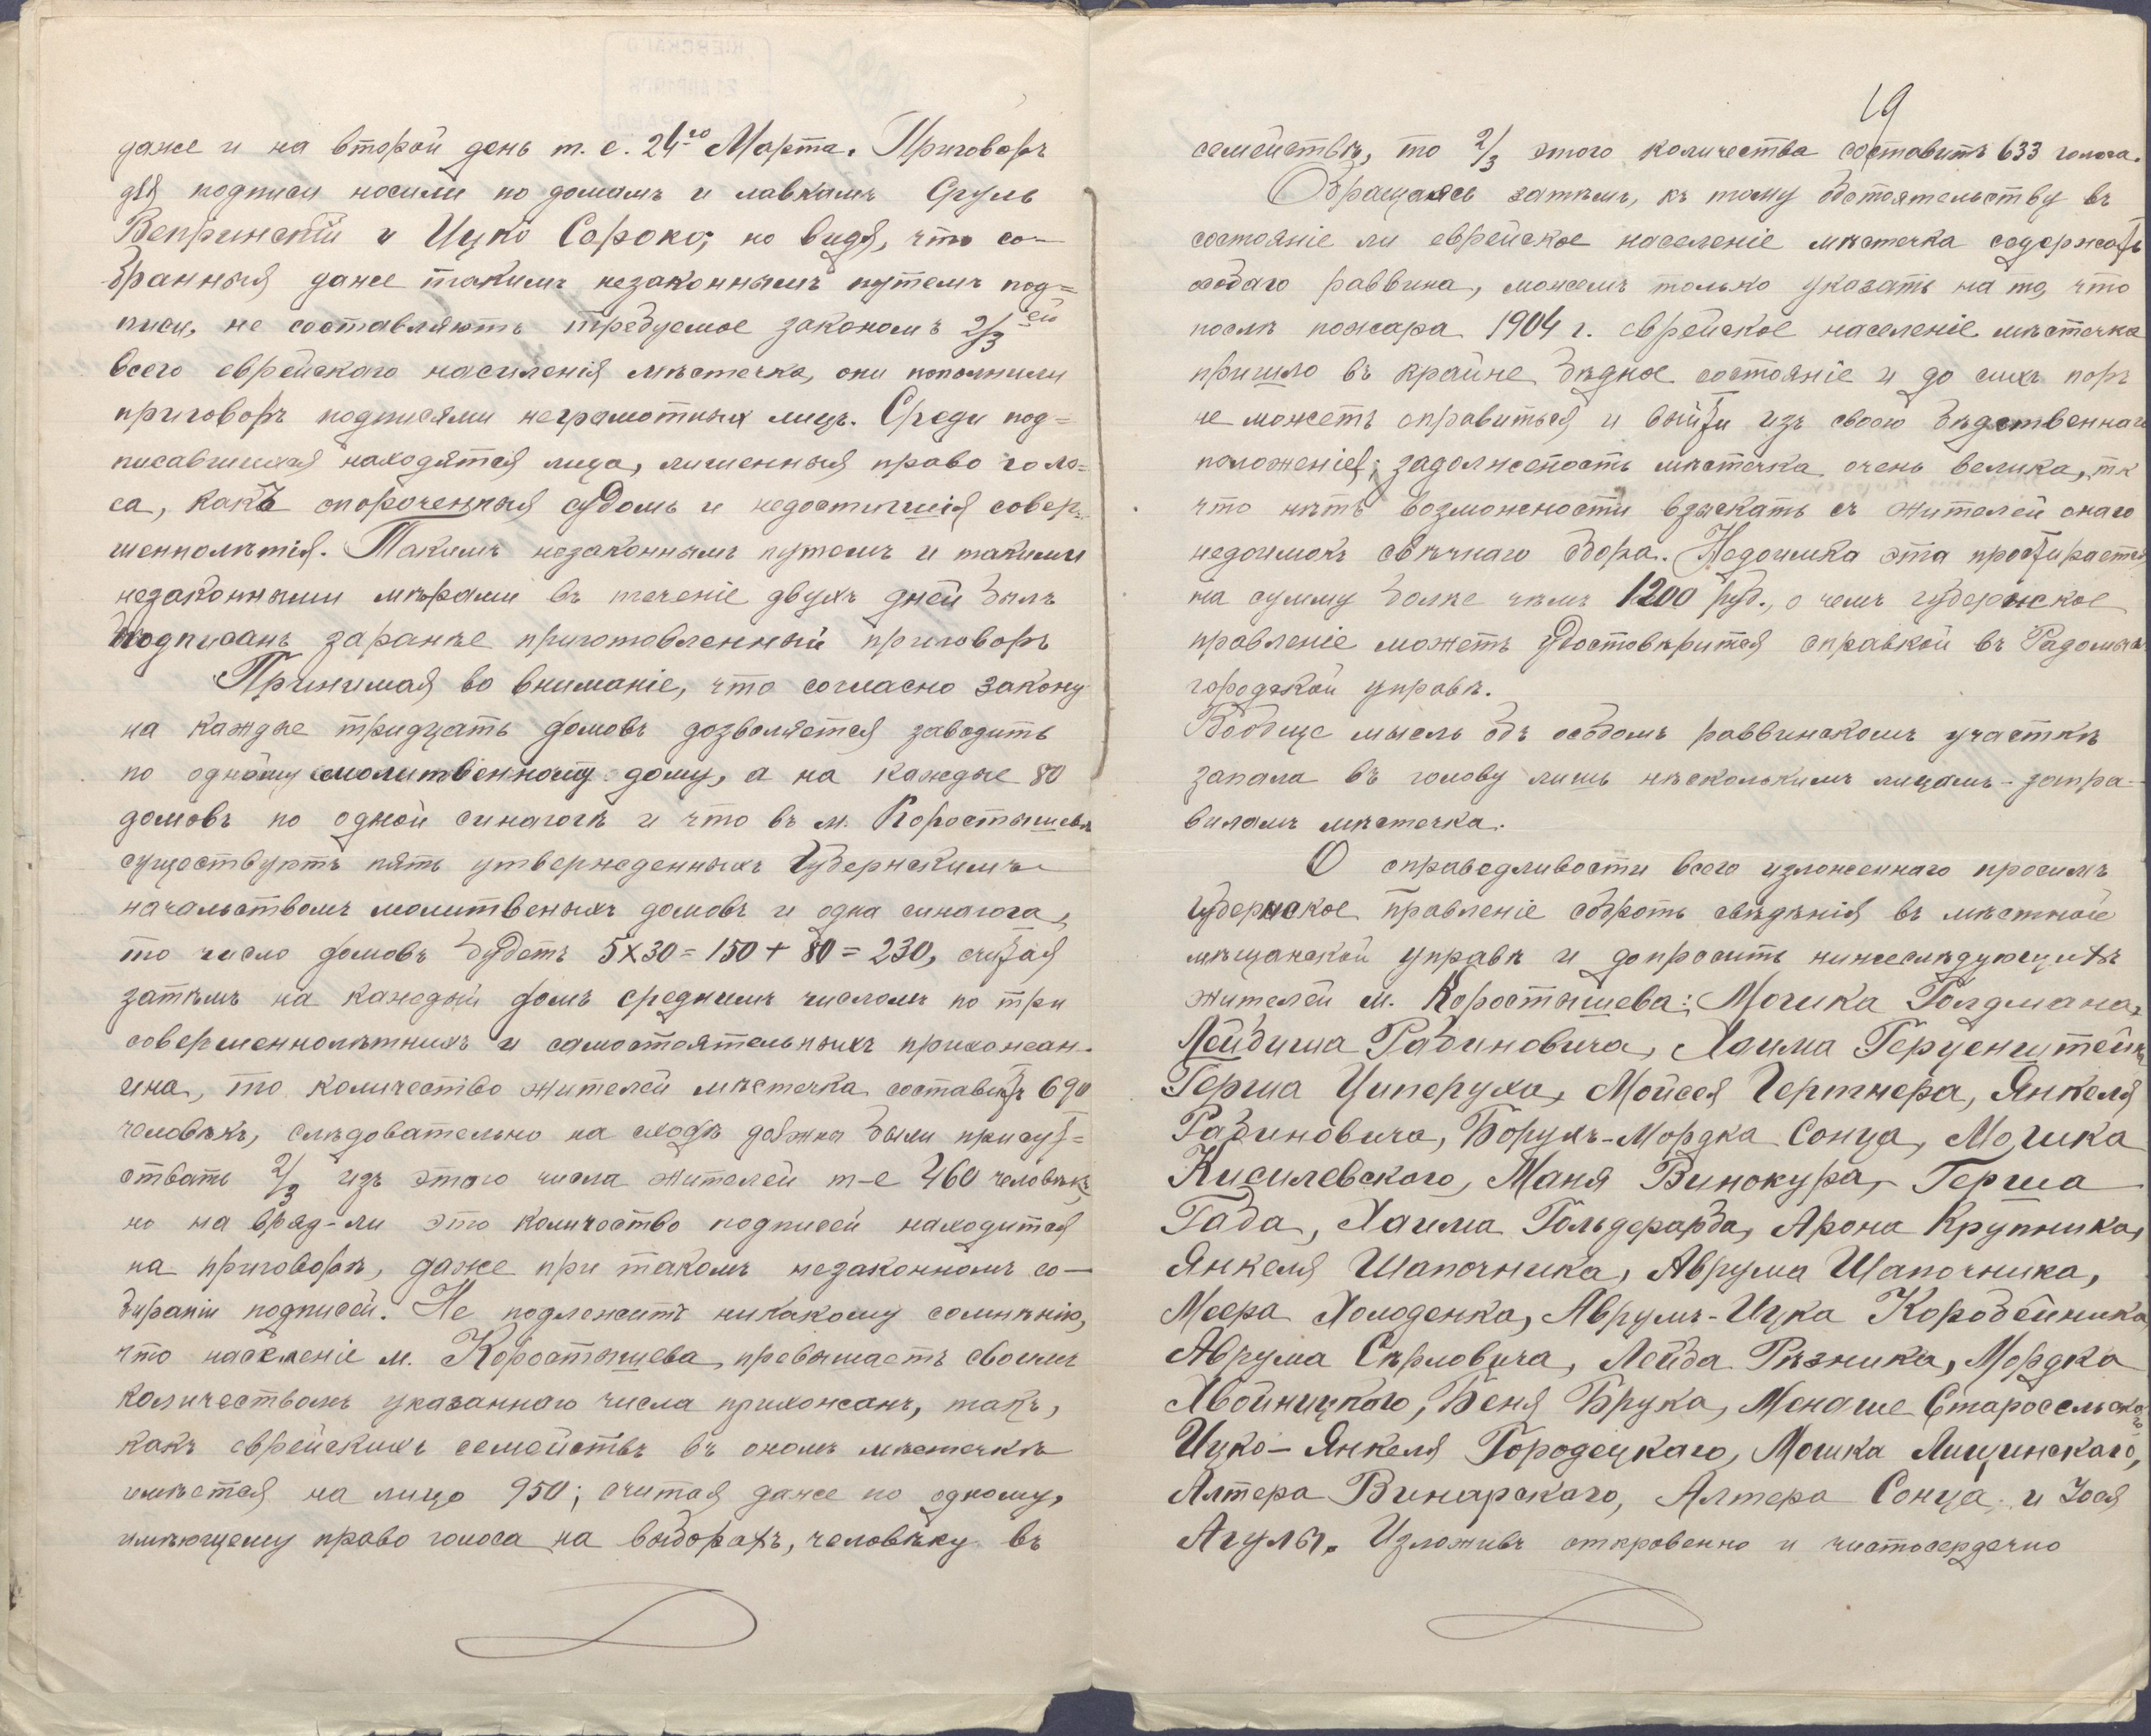 даже и на второй день т. е. 24го Марта. Приговоръ
для подписи носили по домамъ и лавкамъ Сруль
Вепринскій и Ицко Сороко; но видя, что со-
бранныя даже такимъ незаконнымъ путемъ под=
писи, не составляютъ требуемое закономъ 2/3ей
всего еврейскаго населенія мѣстечка, они пополнили
приговоръ подписями неграмотныхъ лицъ. Среди под=
писавшихся находятся лица, лишенныя право голо=
са, какъ опороченныя судомъ и недостигшія совер=
шеннолѣтія. Такимъ незаконнымъ путемъ и такими
незаконными мѣрами въ теченіе двухъ дней былъ
подписанъ заранѣе приготовленный приговоръ
Принимая во вниманіе, что согласно закону
на каждые тридцать домовъ дозволяется заводить
по одному молитвенному дому, а на каждые 80
домовъ по одной синагогѣ и что въ м. Коростышевѣ
существуютъ пять утвержденныхъ Губернскимъ
начальствомъ молитвеныхъ домовъ и одна синагога,
то число домовъ будетъ 5х30=150+80=230, считая
затѣмъ на каждый домъ среднимъ числомъ по три
совершеннолѣтнихъ и самостоятельныхъ прихожан-
ина, то количество жителей мѣстечка составитъ 690
человѣкъ, слѣдовательно на сходѣ должны были присут=
ствать 2/3 изъ этого числа жителей т-е 460 человѣкъ,
но на вряд-ли это количество подписей находится
на приговорѣ, даже при такомъ незаконномъ со-
бираніи подписей. Не подлежитъ никакому сомнѣнію,
что населеніе м. Коростышева превышаетъ своимъ
количествомъ указаннаго числа прихожанъ, такъ,
какъ еврейскихъ семействъ въ ономъ мѣстечкѣ
имѣется на лицо 950; считая даже по одному,
имѣющему право голоса на выборахъ, человѣку въ
19
семействѣ, то 2/3 этого количества составитъ 633 голоса.
Обращаясь затѣмъ, къ тому обстоятельству въ
состояніе ли еврейское населеніе мѣстечка содержать
особаго раввина, можемъ только указать на то, что
послѣ пожара 1904 г. еврейское населеніе мѣстечка
пришло въ крайне бѣдное состояніе и до сихъ поръ
не можетъ оправиться и выйти изъ своего бѣдственнаго
положенія; задолженость мѣстечка очень велика, тк
что нѣтъ возможности взыскать съ жителей онаго
недоимокъ свѣчнаго сбора. Недоимка эта простирается
на сумму болѣе чѣмъ 1200 руб., о чемъ губернское
правленіе можетъ удостовѣрится справкой въ Радомысл
городской управѣ.
Вообще мысль объ особомъ раввинскомъ участкѣ
запала въ голову лишь нѣсколькимъ лицамъ - запра-
виламъ мѣстечка.
О справедливости всего изложеннаго просимъ
Губернское правленіе собрать свѣдѣнія въ мѣстной
мѣщанской управѣ и допросить нижеслѣдующихъ
жителей м. Коростышева: Мошка Голдмана,
Лейбиша Рабиновича, Хаима Герценштейна
Герша Циперуха, Мойсея Гертнера, Янкеля
Рабиновича, Борухъ-Мордка Сонца, Мошка
Кисилевского, Маня Винокура, Герша
Гада, Хаима Гольдфарба, Арона Крупника,
Янкеля Шапочника, Аврума Шапочника,
Меера Холоденка, Аврумъ-Ицка Коробейника
Аврума Сѣрловича, Лейба Рѣзника, Мордка
Хвойницкого, Беня Брука, Менаше Старосельского
Ицко-Янкеля Городецкаго, Мошка Лищинскаго,
Алтера Винарскаго, Алтера Сонца и Іося
Агуля. Изложивъ откровенно и чистосердечно